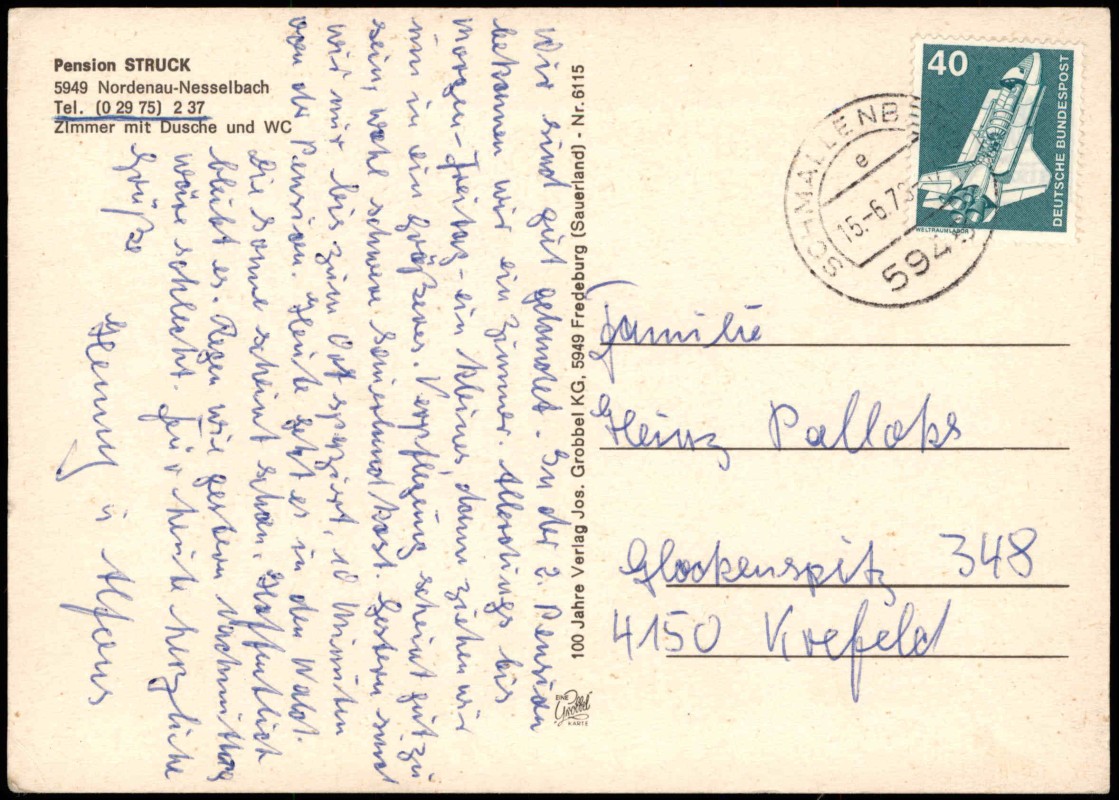 Pension STRUCK
5949 Nordenau-Nesselbach
Tel. (0 29 75) 2 37
Zimmer mit Dusche und WC
Wir sind gut gelandet. In der 2. Pension
bekamen wir ein Zimmer. Allerdings bis
Morgen-Freitag-ein kleines dann ziehen wir
um in ein größeres. Verpflegung scheint gut zu
sein, wohl schwere Sauerlandkost. Gestern sind
wir nur bis zum Ort spaziert, 10 Minuten
von der Pension. Heute geht es in den Wald.
Die Sonne scheint schon. Hoffentlich
bleibt es. Regen wie gestern Nachmittag
wäre schlecht. Für heute herzliche
Grüße
Henny u Alfons
100 Jahre Verlag Jos. Grobbel KG, 5949 Fredeburg (Sauerland) - Nr. 6115
EINE
Grobbel
KARTE
40
DEUTSCHE BUNDESPOST
WELTRAUMLABOR
SCHMALLENB
e
15.-6.7
594
Familie
Heinz Palloks
Glockenspitz 348
4150 Krefeld